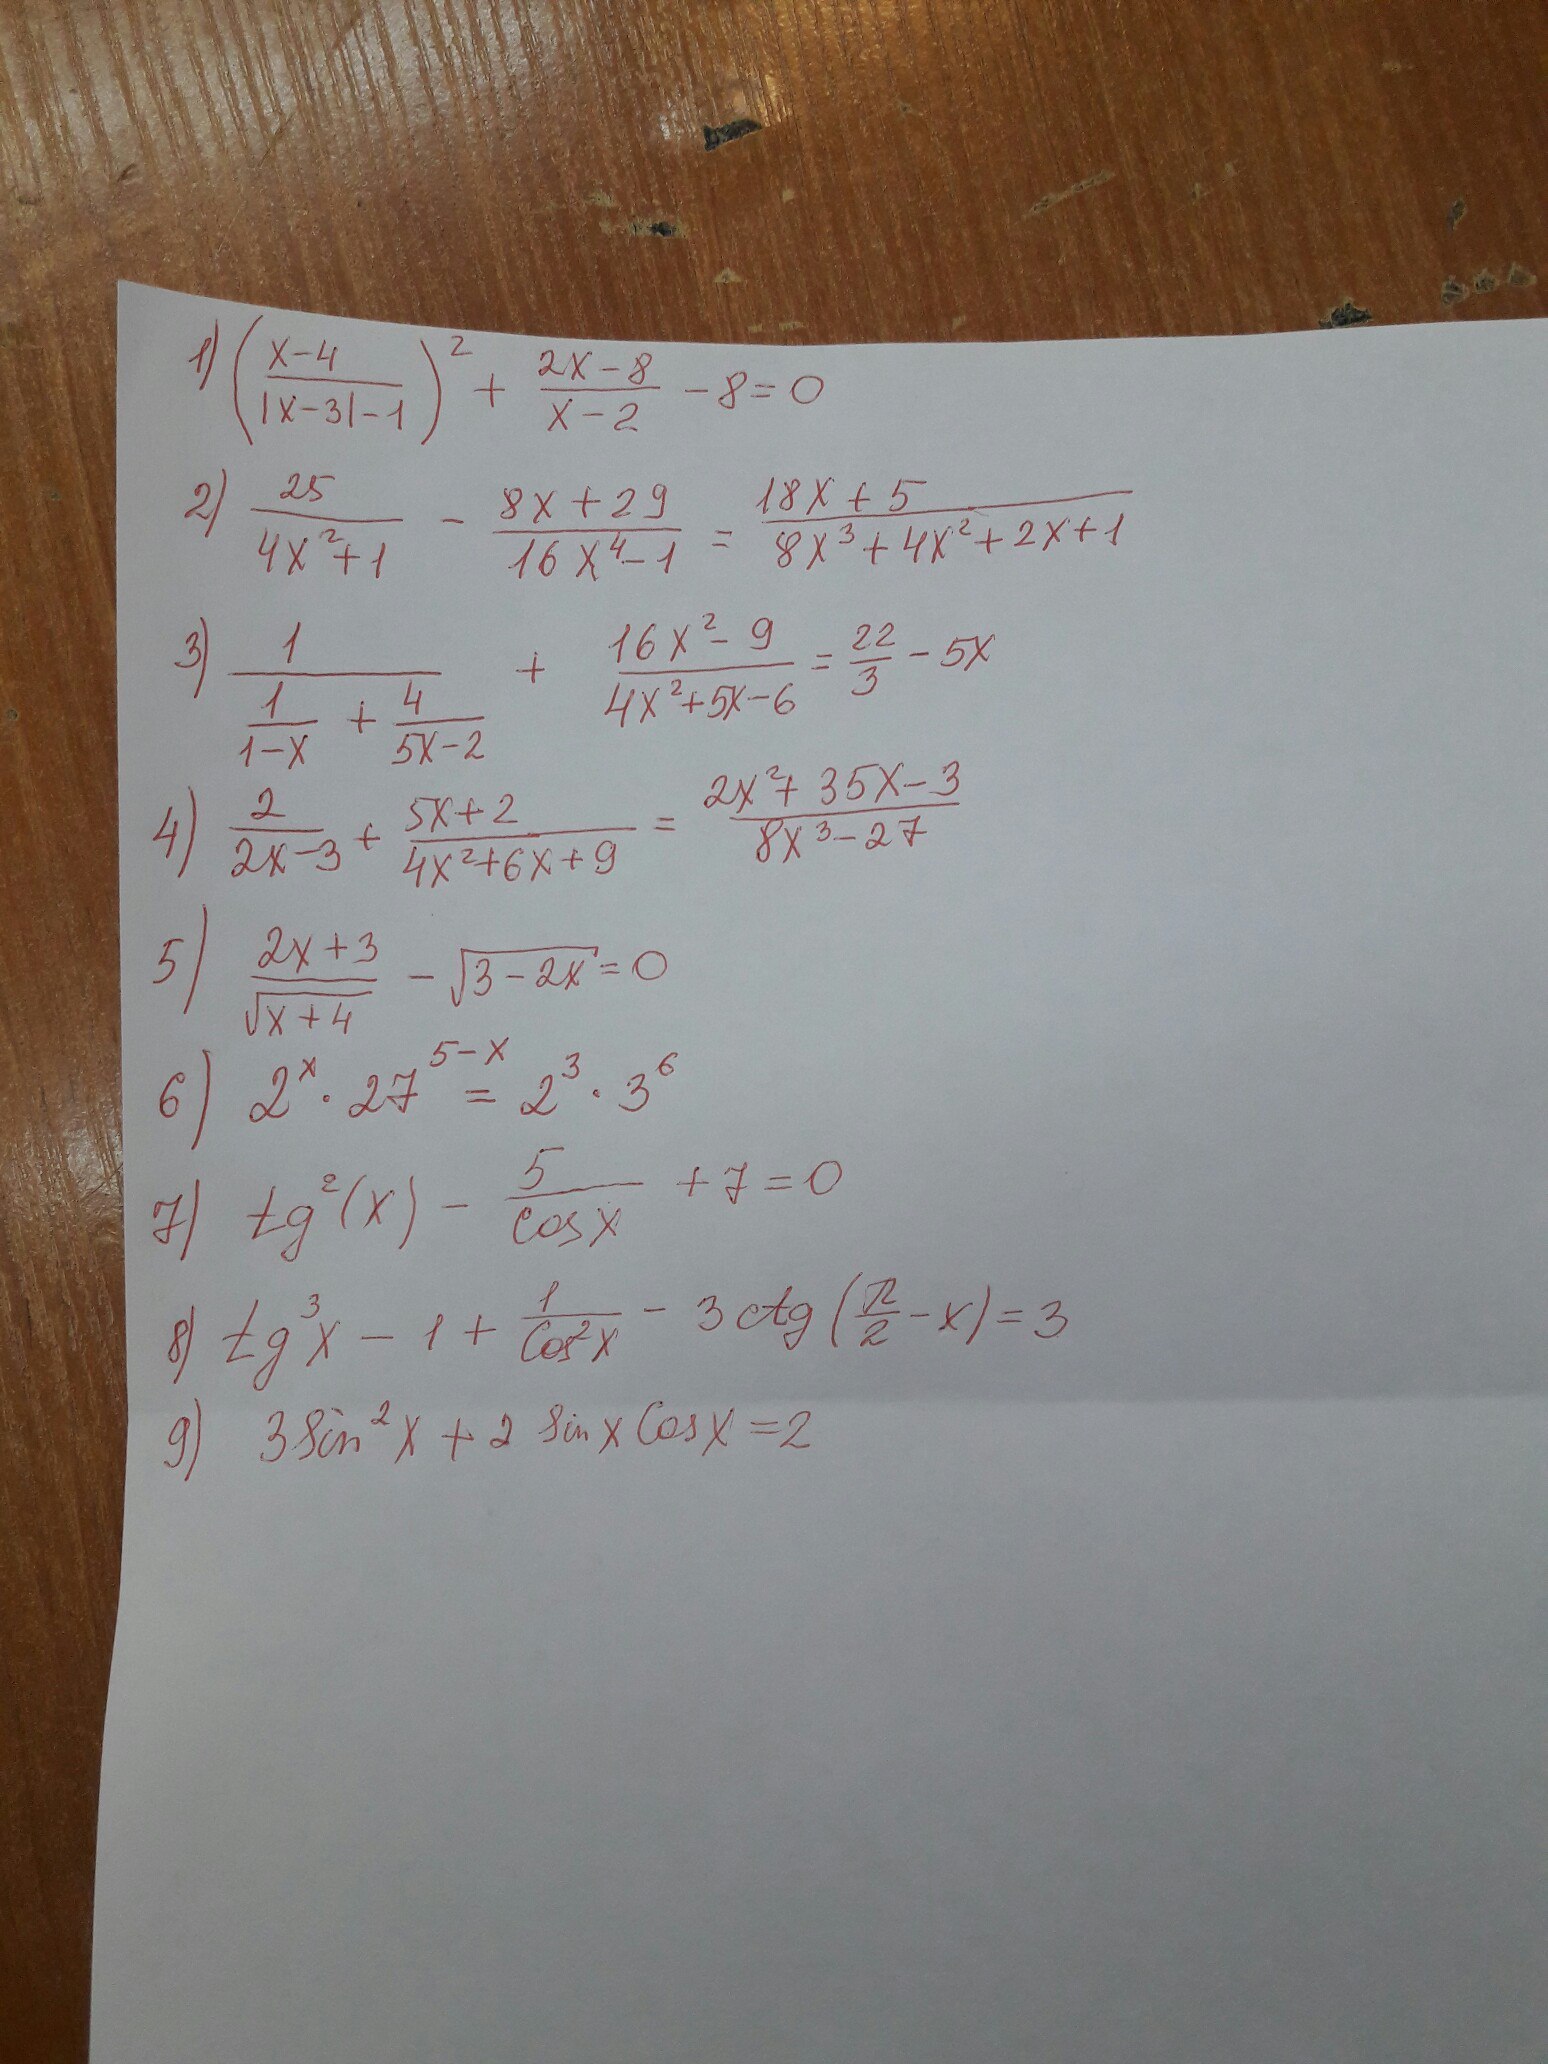 1) ((x-4)/(|x-3|-1))² + (2x-8)/(x-2) - 8 = 0
2) 25/(4x²+1) - (8x+29)/(16x⁴-1) = (18x+5)/(8x³+4x²+2x+1)
3) 1/(1/(1-x) + 4/(5x-2)) + (16x²-9)/(4x²+5x-6) = 22/3 - 5x
4) 2/(2x-3) + (5x+2)/(4x²+6x+9) = (2x²+35x-3)/(8x³-27)
5) (2x+3)/√(x+4) - √(3-2x) = 0
6) 2^x · 27^(5-x) = 2³ · 3⁶
7) tg²(x) - 5/cosx + 7 = 0
8) tg³x - 1 + 1/cos²x - 3ctg(π/2 - x) = 3
9) 3sin²x + 2 sinx cosx = 2